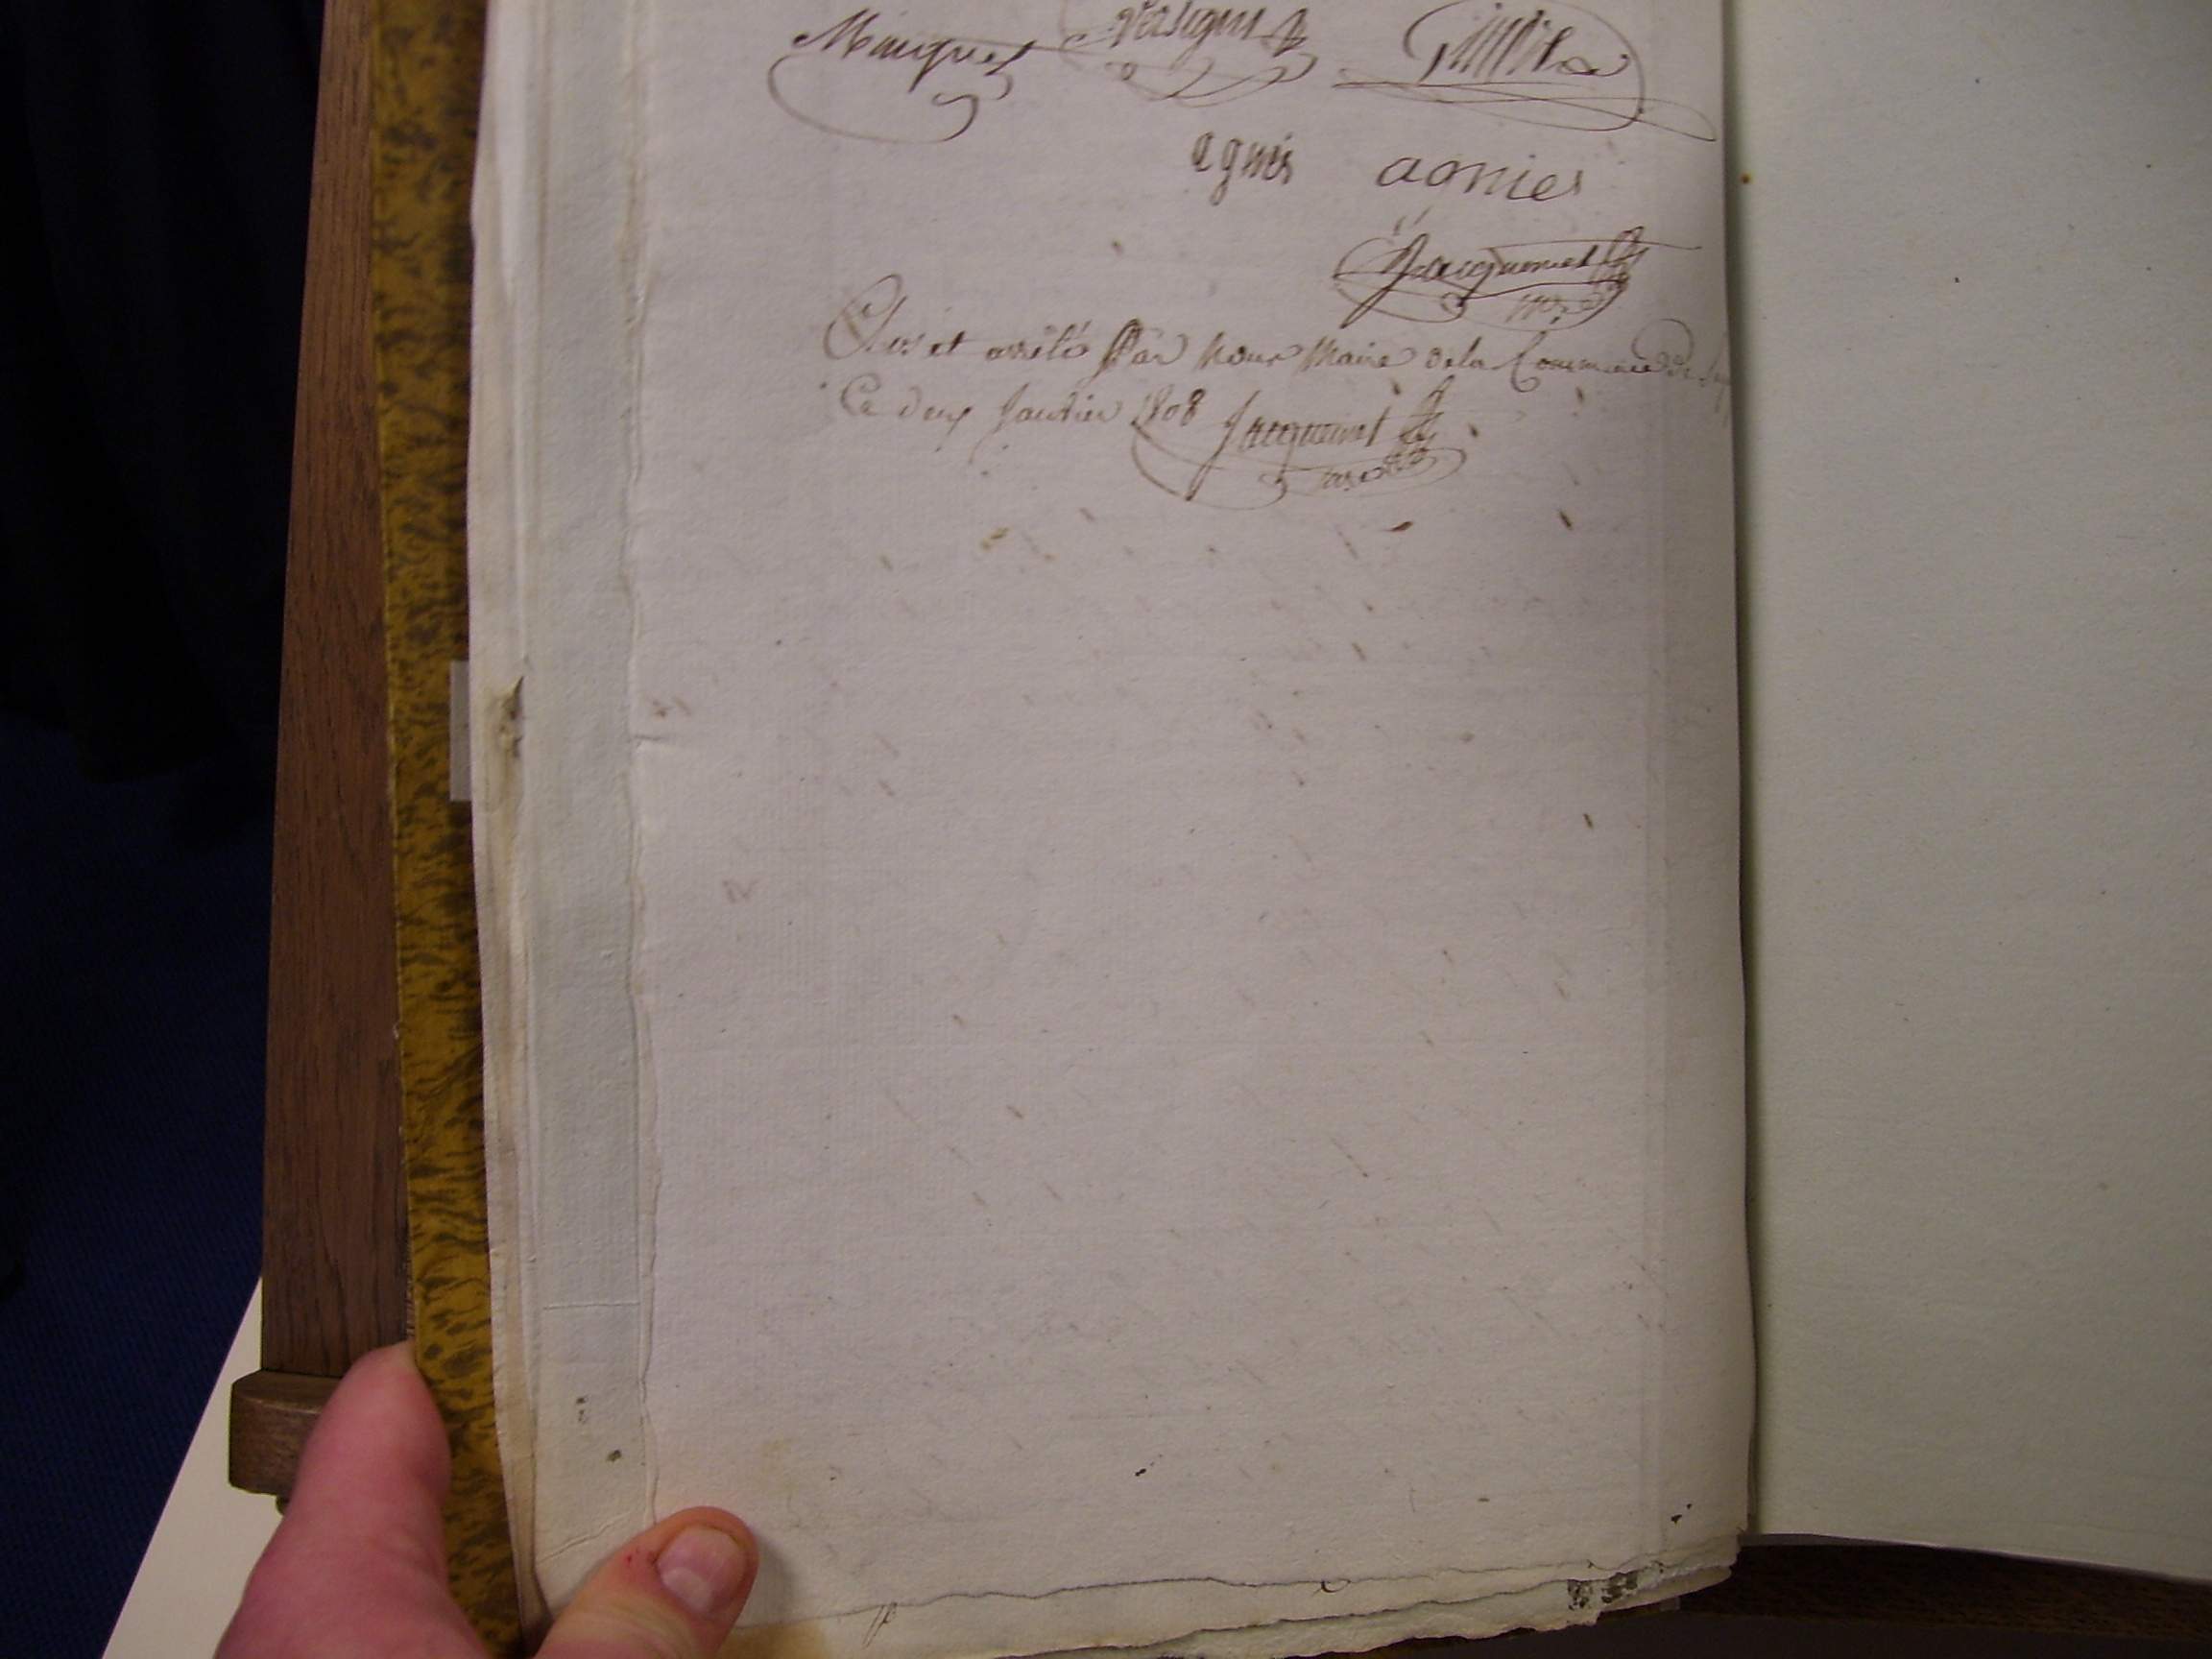 Minguet
agnis agnier
Jacqueminet
Clos et arrêté Par Nous Maire dela Commune De
Ce deux Janvier 1808 Jacqueminet